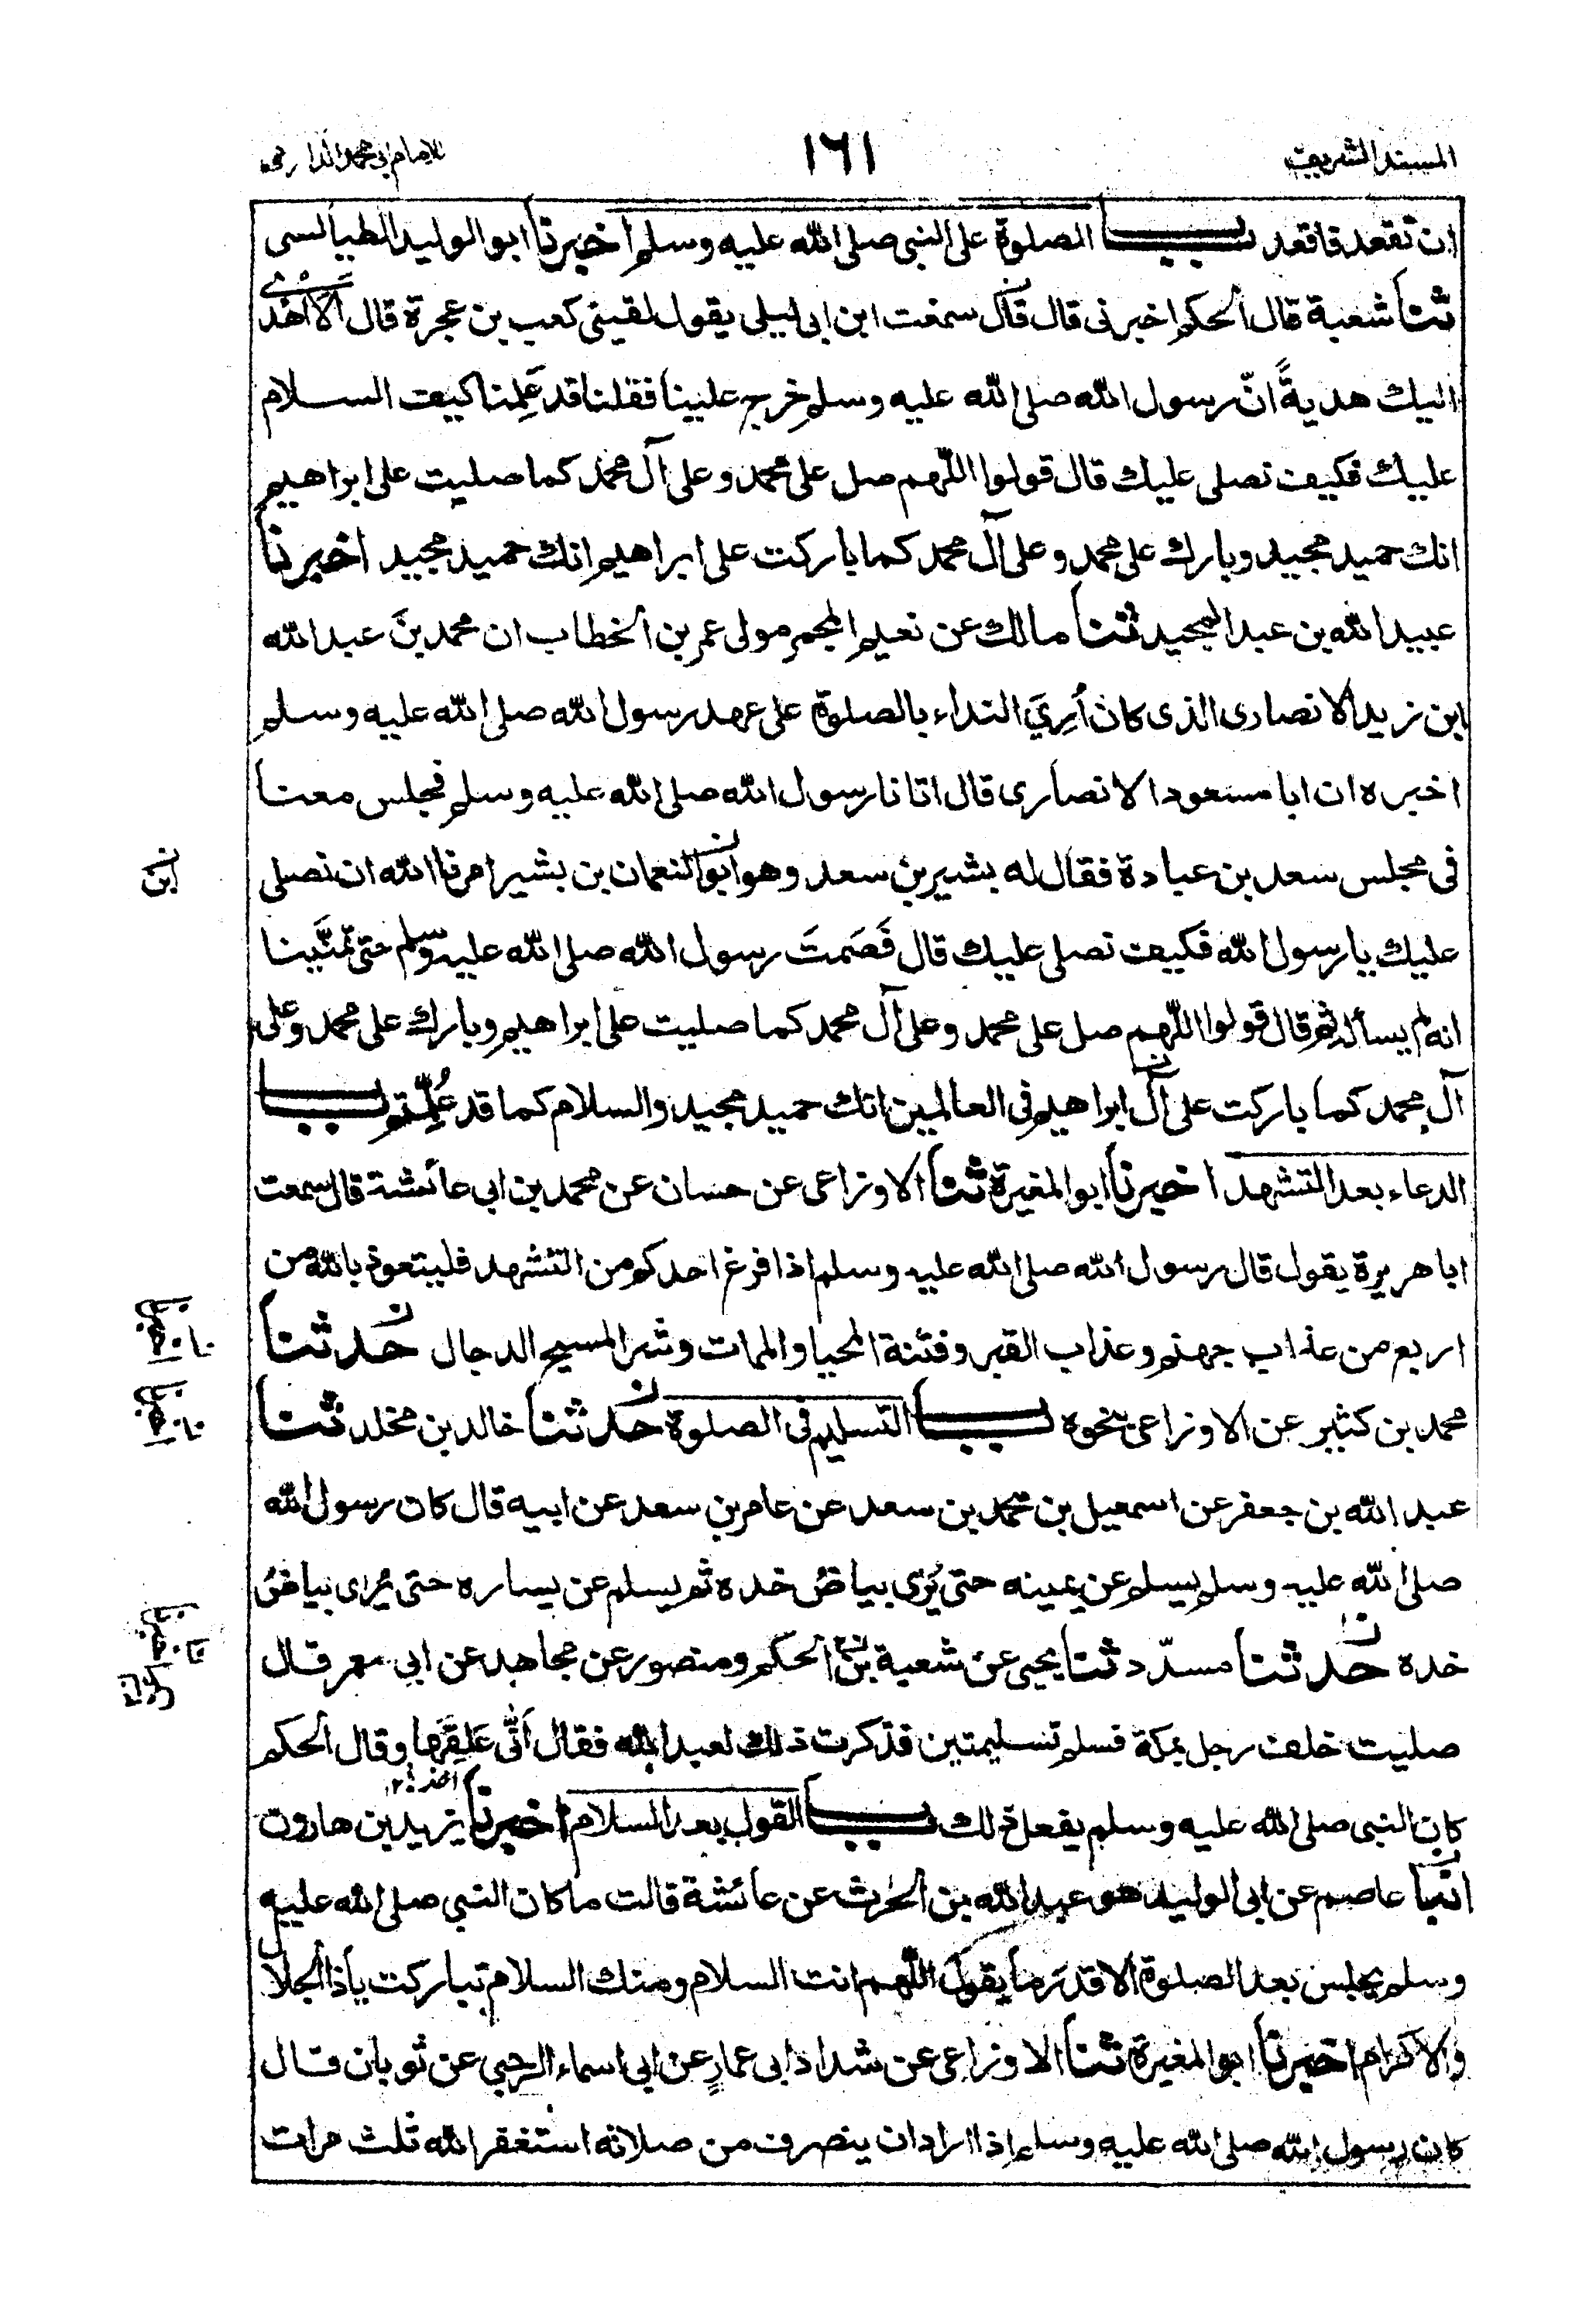 المسند الشريف
١٦١
للامام ابى محمد الدارمى
ان تقعد فاقعد باب الصلوة على النبى صلى الله عليه وسلم اخبرنا ابو الوليد الطيالسى
ثنا شعبة قال الحكم اخبرنى قال قال سمعت ابن ابى ليلى يقول لقينى كعب بن عجرة قال اَلَا اُهْدِىْ
اليك هديةً انّ رسول الله صلى الله عليه وسلم خرج علينا فقلنا قد عَلِمنا كيف السلام
عليك فكيف نصلى عليك قال قولوا اللّهم صل على محمد وعلى آل محمد كما صليت على ابراهيم
انك حميد مجيد وبارك على محمد وعلى آل محمد كما باركت على ابراهيم اِنك حميد مجيد اخبرنا
عبيد الله بن عبد المجيد ثنا مالك عن نعيم المجمر مولى عمر بن الخطاب ان محمد بن عبد الله
ابن زيد الانصارى الذى كان اُرِيَ النداء بالصلوة على عهد رسول الله صلى الله عليه وسلم
اخبره ان ابا مسعود الانصارى قال اتانا رسول الله صلى الله عليه وسلم فجلس معنا
فى مجلس سعد بن عبادة فقال له بشير بن سعد وهو ابو النعمان بن بشير امرنا الله ان نصلى
ابن
عليك يا رسول الله فكيف نصلى عليك قال فَصَمتَ رسول الله صلى الله عليه وسلم حتى تمنَّينا
انه لم يسأله ثم قال قولوا اللّهم صل على محمد وعلى آل محمد كما صليت على ابراهيم وبارك على محمد وعلى
آل محمد كما باركت على آل ابراهيم فى العالمين انك حميد مجيد والسلام كما قد عُلِّمتم باب
الدعاء بعد التشهد اخبرنا ابو المغيرة ثنا الاوزاعى عن حسان عن محمد بن ابى عائشة قال سمعت
ابا هريرة يقول قال رسول الله صلى الله عليه وسلم اذا فرغ احدكم من التشهد فليتعوذ بالله من
اربع من عذاب جهنم وعذاب القبر وفتنة المحيا والممات وشر المسيح الدجال حدثنا
اخبرنا
محمد بن كثير عن الاوزاعى بنحوه باب التسليم فى الصلوة حدثنا خالد بن مخلد ثنا
اخبرنا
عبد الله بن جعفر عن اسمعيل بن محمد بن سعد عن عامر بن سعد عن ابيه قال كان رسول الله
صلى الله عليه وسلم يسلم عن يمينه حتى يُرٰى بياضُ خده ثم يسلم عن يساره حتى يُرٰى بياضُ
خده حدثنا مسدّد ثنا يحيى عن شعبة بن الحكم ومنصور عن مجاهد عن ابى معمر قال
اخبرنا
صليت خلف رجل بمكة فسلم تسليمتين فذكرت ذلك لعبد الله فقال اَنّٰى عَلِقَها وقال الحكم
كان النبى صلى الله عليه وسلم يفعل ذلك باب القول بعد السلام اخبرنا يزيد بن هارون
انبأ عاصم عن ابى الوليد هو عبد الله بن الحرث عن عائشة قالت ما كان النبى صلى الله عليه
وسلم يجلس بعد الصلوة الا قدر ما يقول اللّهم انت السلام ومنك السلام تباركت يا ذا الجلال
والاكرام اخبرنا ابو المغيرة ثنا الاوزاعى عن شداد ابى عمارٍ عن ابى اسماء الرحبى عن ثوبان قال
كان رسول الله صلى الله عليه وسلم اذا اراد ان ينصرف من صلاته استغفر الله ثلث مرات